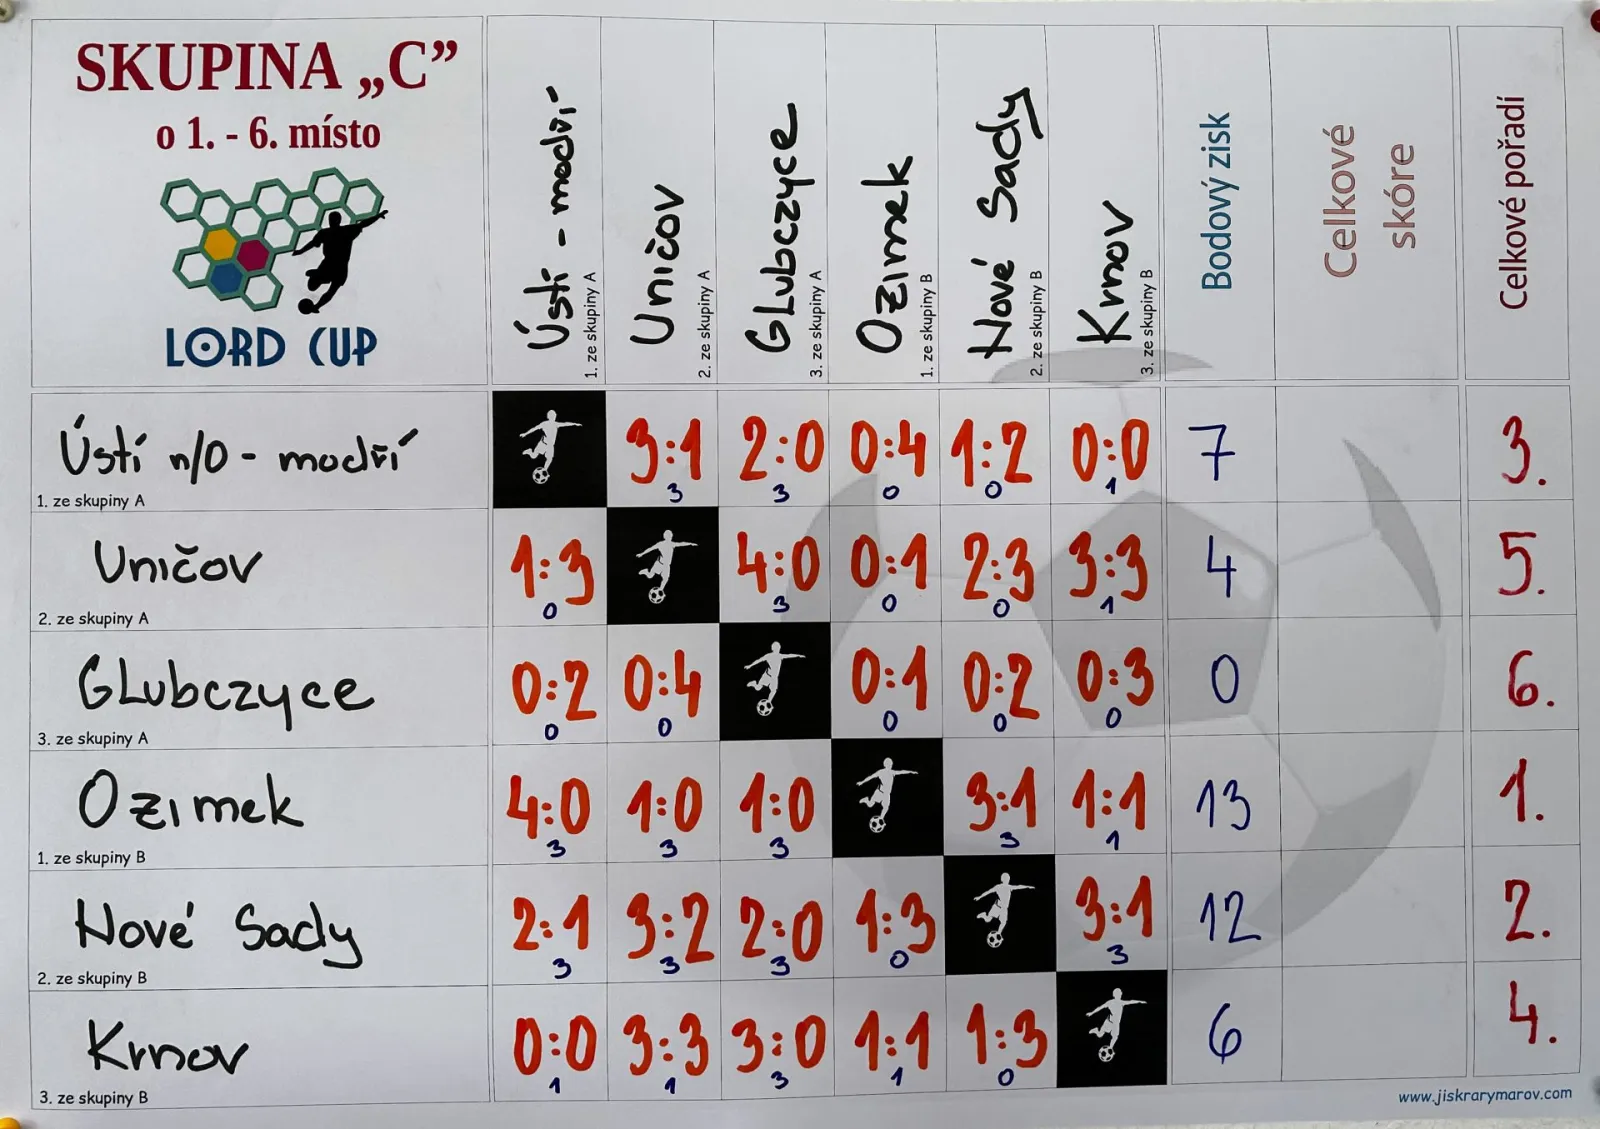 SKUPINA „C”
o 1. - 6. místo
LORD CUP
Ústí - modří
1. ze skupiny A
Uničov
2. ze skupiny A
Glubczyce
3. ze skupiny A
Ozimek
1. ze skupiny B
Nové Sady
2. ze skupiny B
Krnov
3. ze skupiny B
Bodový zisk
Celkové
skóre
Celkové pořadí
Ústí n/O - modří 3:1 2:0 0:4 1:2 0:0 7 3.
3 3 0 0 1
1. ze skupiny A
Uničov 1:3 4:0 0:1 2:3 3:3 4 5.
0 3 0 0 1
2. ze skupiny A
Glubczyce 0:2 0:4 0:1 0:2 0:3 0 6.
0 0 0 0 0
3. ze skupiny A
Ozimek 4:0 1:0 1:0 3:1 1:1 13 1.
3 3 3 3 1
1. ze skupiny B
Nové Sady 2:1 3:2 2:0 1:3 3:1 12 2.
3 3 3 0 3
2. ze skupiny B
Krnov 0:0 3:3 3:0 1:1 1:3 6 4.
1 1 3 1 0
3. ze skupiny B
www.jiskrarymarov.com